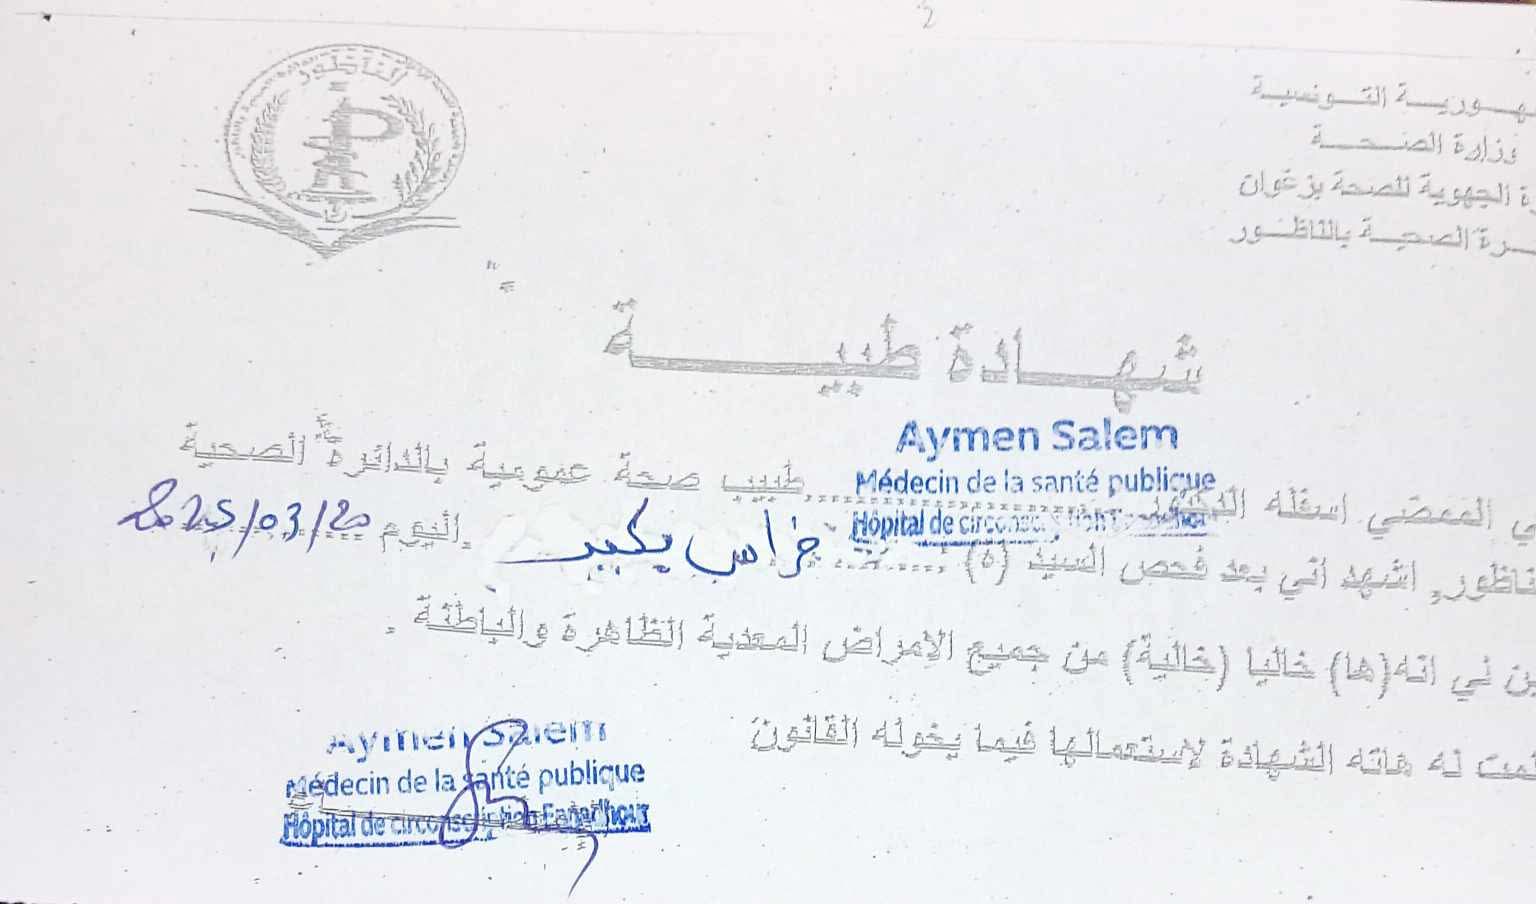 2
الناظور
ـهـوريـــة التـــونسيــة
وزارة الصـــحـــة
ـة الجهوية للصحة بزغوان
ـــرة الصحيــة بالناظـــور
شهـــادة طبيـــــة
Aymen Salem
Médecin de la santé publique
Hôpital de circonscription
ـي الممضي اسفله الدكتور طبيب صحة عمومية بالدائرة الصحية
ناظور, اشهد اني بعد فحص السيد (ة) فراس بكير اليوم 2025/03/20
ـن لي انه(ها) خاليا (خالية) من جميع الامراض المعدية الظاهرة والباطنة .
ـلمت له هاته الشهادة لاستعمالها فيما يخوله القانون
Aymen Salem
Médecin de la santé publique
Hôpital de circonscription Ennadhour